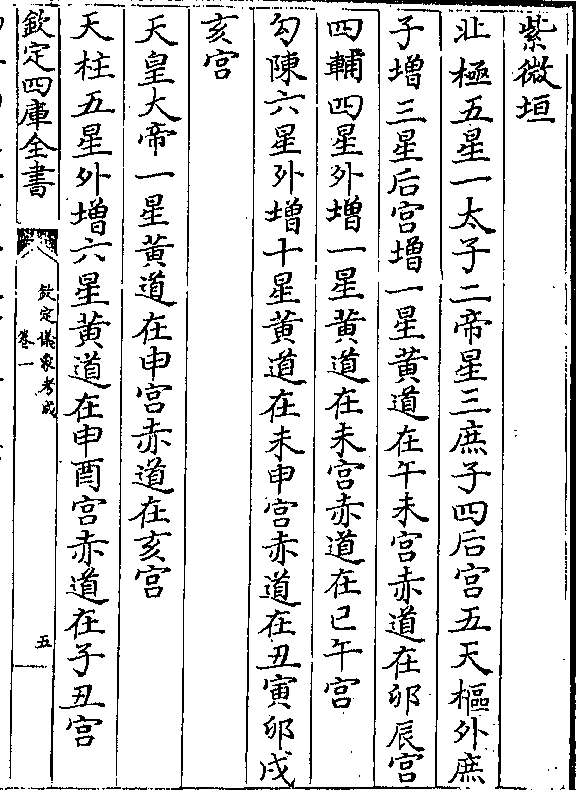 紫微垣
北極五星一太子二帝星三庶子四后宫五天樞外庶
子増三星后宫増一星黄道在午未宫赤道在卯辰宫
四輔四星外増一星黄道在未宫赤道在巳午宫
勾陳六星外増十星黄道在未申宫赤道在丑寅卯戌
亥宫
天皇大帝一星黄道在申宫赤道在亥宫
天柱五星外増六星黄道在申酉宫赤道在子丑宫
欽定四庫全書
欽定儀象考成
卷一
五